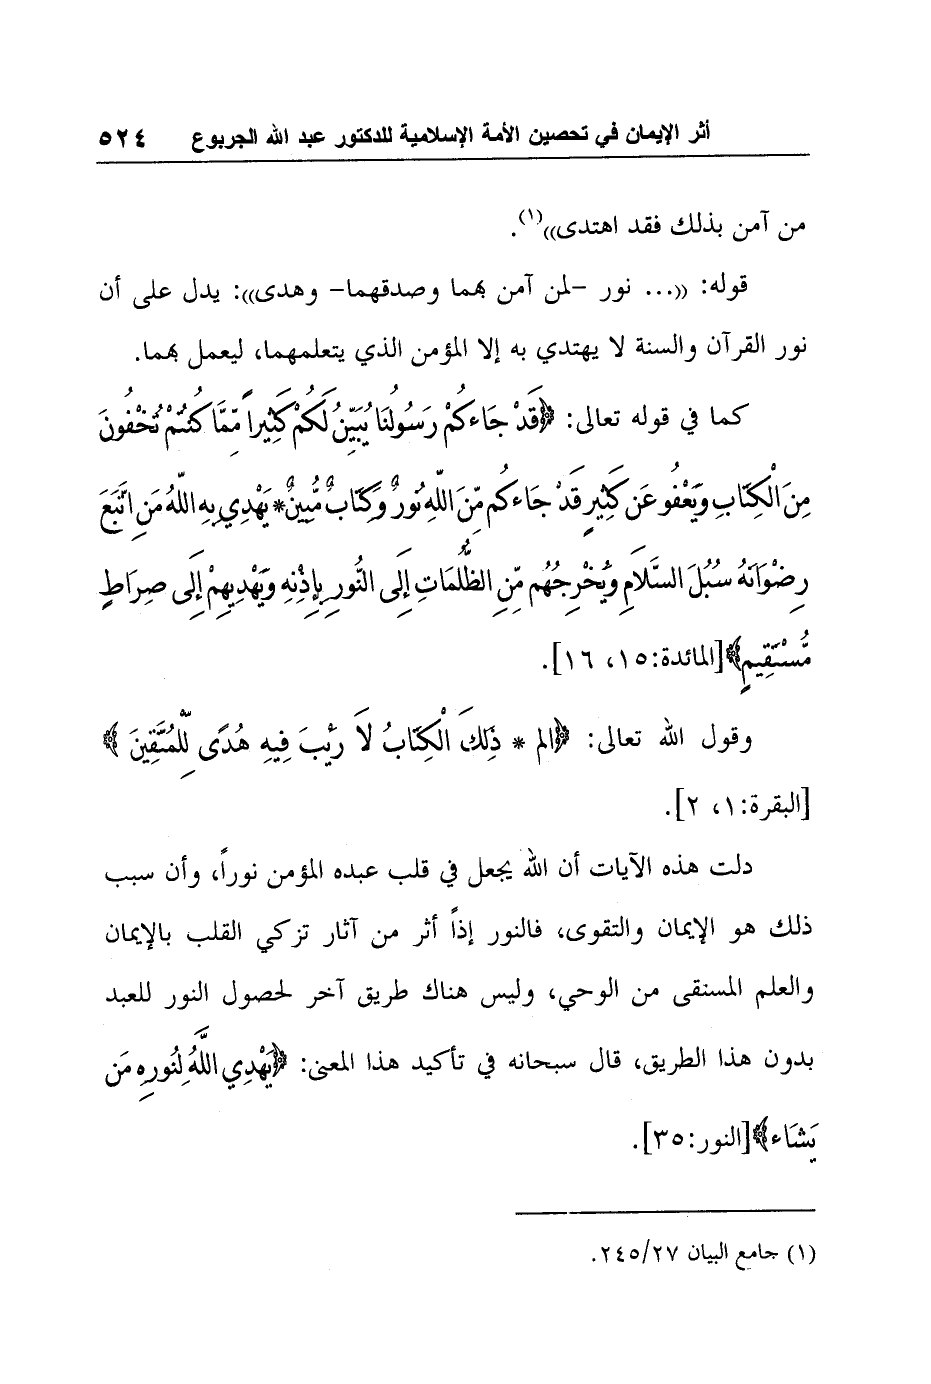 أثر الإيمان في تحصين الأمة الإسلامية للدكتور عبد الله الجربوع ٥٢٤
من آمن بذلك فقد اهتدى))(١).
قوله: ((... نور -لمن آمن بهما وصدقهما- وهدى)): يدل على أن
نور القرآن والسنة لا يهتدي به إلا المؤمن الذي يتعلمهما، ليعمل بهما.
كما في قوله تعالى: ﴿قَدْ جَاءكُمْ رَسُولُنَا يُبَيِّنُ لَكُمْ كَثِيراً مِّمَّا كُنتُمْ تُخْفُونَ
مِنَ الْكِتَابِ وَيَعْفُو عَن كَثِيرٍ قَدْ جَاءكُم مِّنَ اللّهِ نُورٌ وَكِتَابٌ مُّبِينٌ * يَهْدِي بِهِ اللّهُ مَنِ اتَّبَعَ
رِضْوَانَهُ سُبُلَ السَّلاَمِ وَيُخْرِجُهُم مِّنِ الظُّلُمَاتِ إِلَى النُّورِ بِإِذْنِهِ وَيَهْدِيهِمْ إِلَى صِرَاطٍ
مُّسْتَقِيمٍ﴾[المائدة:١٥، ١٦].
وقول الله تعالى: ﴿الم * ذَلِكَ الْكِتَابُ لاَ رَيْبَ فِيهِ هُدًى لِّلْمُتَّقِينَ﴾
[البقرة:١، ٢].
دلت هذه الآيات أن الله يجعل في قلب عبده المؤمن نوراً، وأن سبب
ذلك هو الإيمان والتقوى، فالنور إذاً أثر من آثار تزكي القلب بالإيمان
والعلم المستقى من الوحي، وليس هناك طريق آخر لحصول النور للعبد
بدون هذا الطريق، قال سبحانه في تأكيد هذا المعنى: ﴿يَهْدِي اللَّهُ لِنُورِهِ مَن
يَشَاء﴾[النور:٣٥].
(١) جامع البيان ٢٤٥/٢٧.